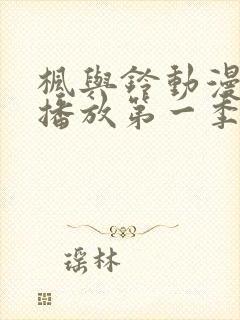 楓與鈴動漫
播放第一季
瑶林